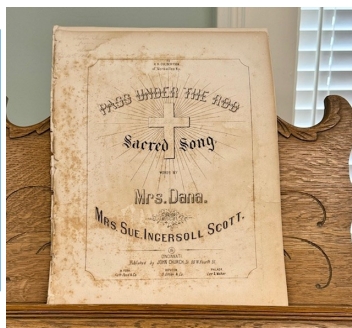 PASS UNDER THE ROD
Sacred Song
WORDS BY
Mrs. Dana.
MRS SUE. INGERSOLL SCOTT.
CINCINNATI
Published by JOHN CHURCH, Jr. 66 W. Fourth St.